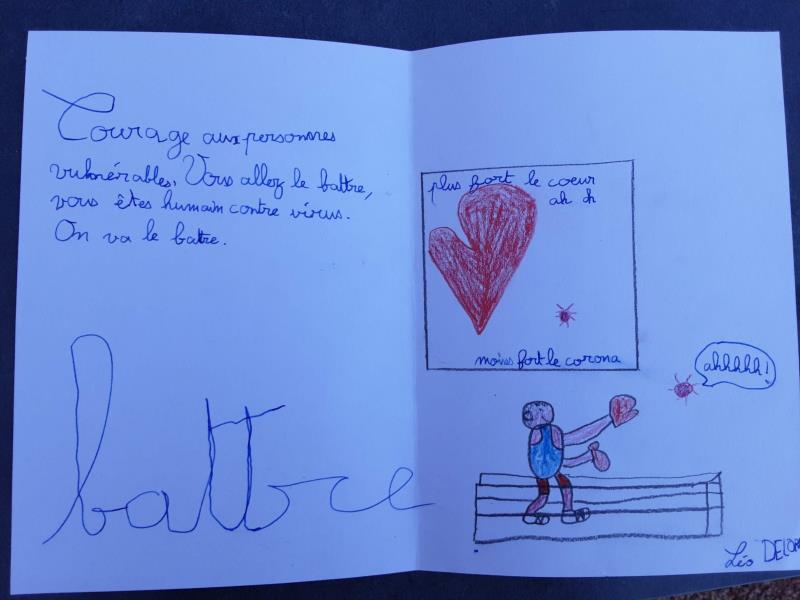 Courage aux personnes
vulnérables, Vous allez le battre,
vous êtes humain contre virus.
On va le battre.
battre
plus fort le coeur
ah ah
moins fort le corona
ahhhhh!
Léo